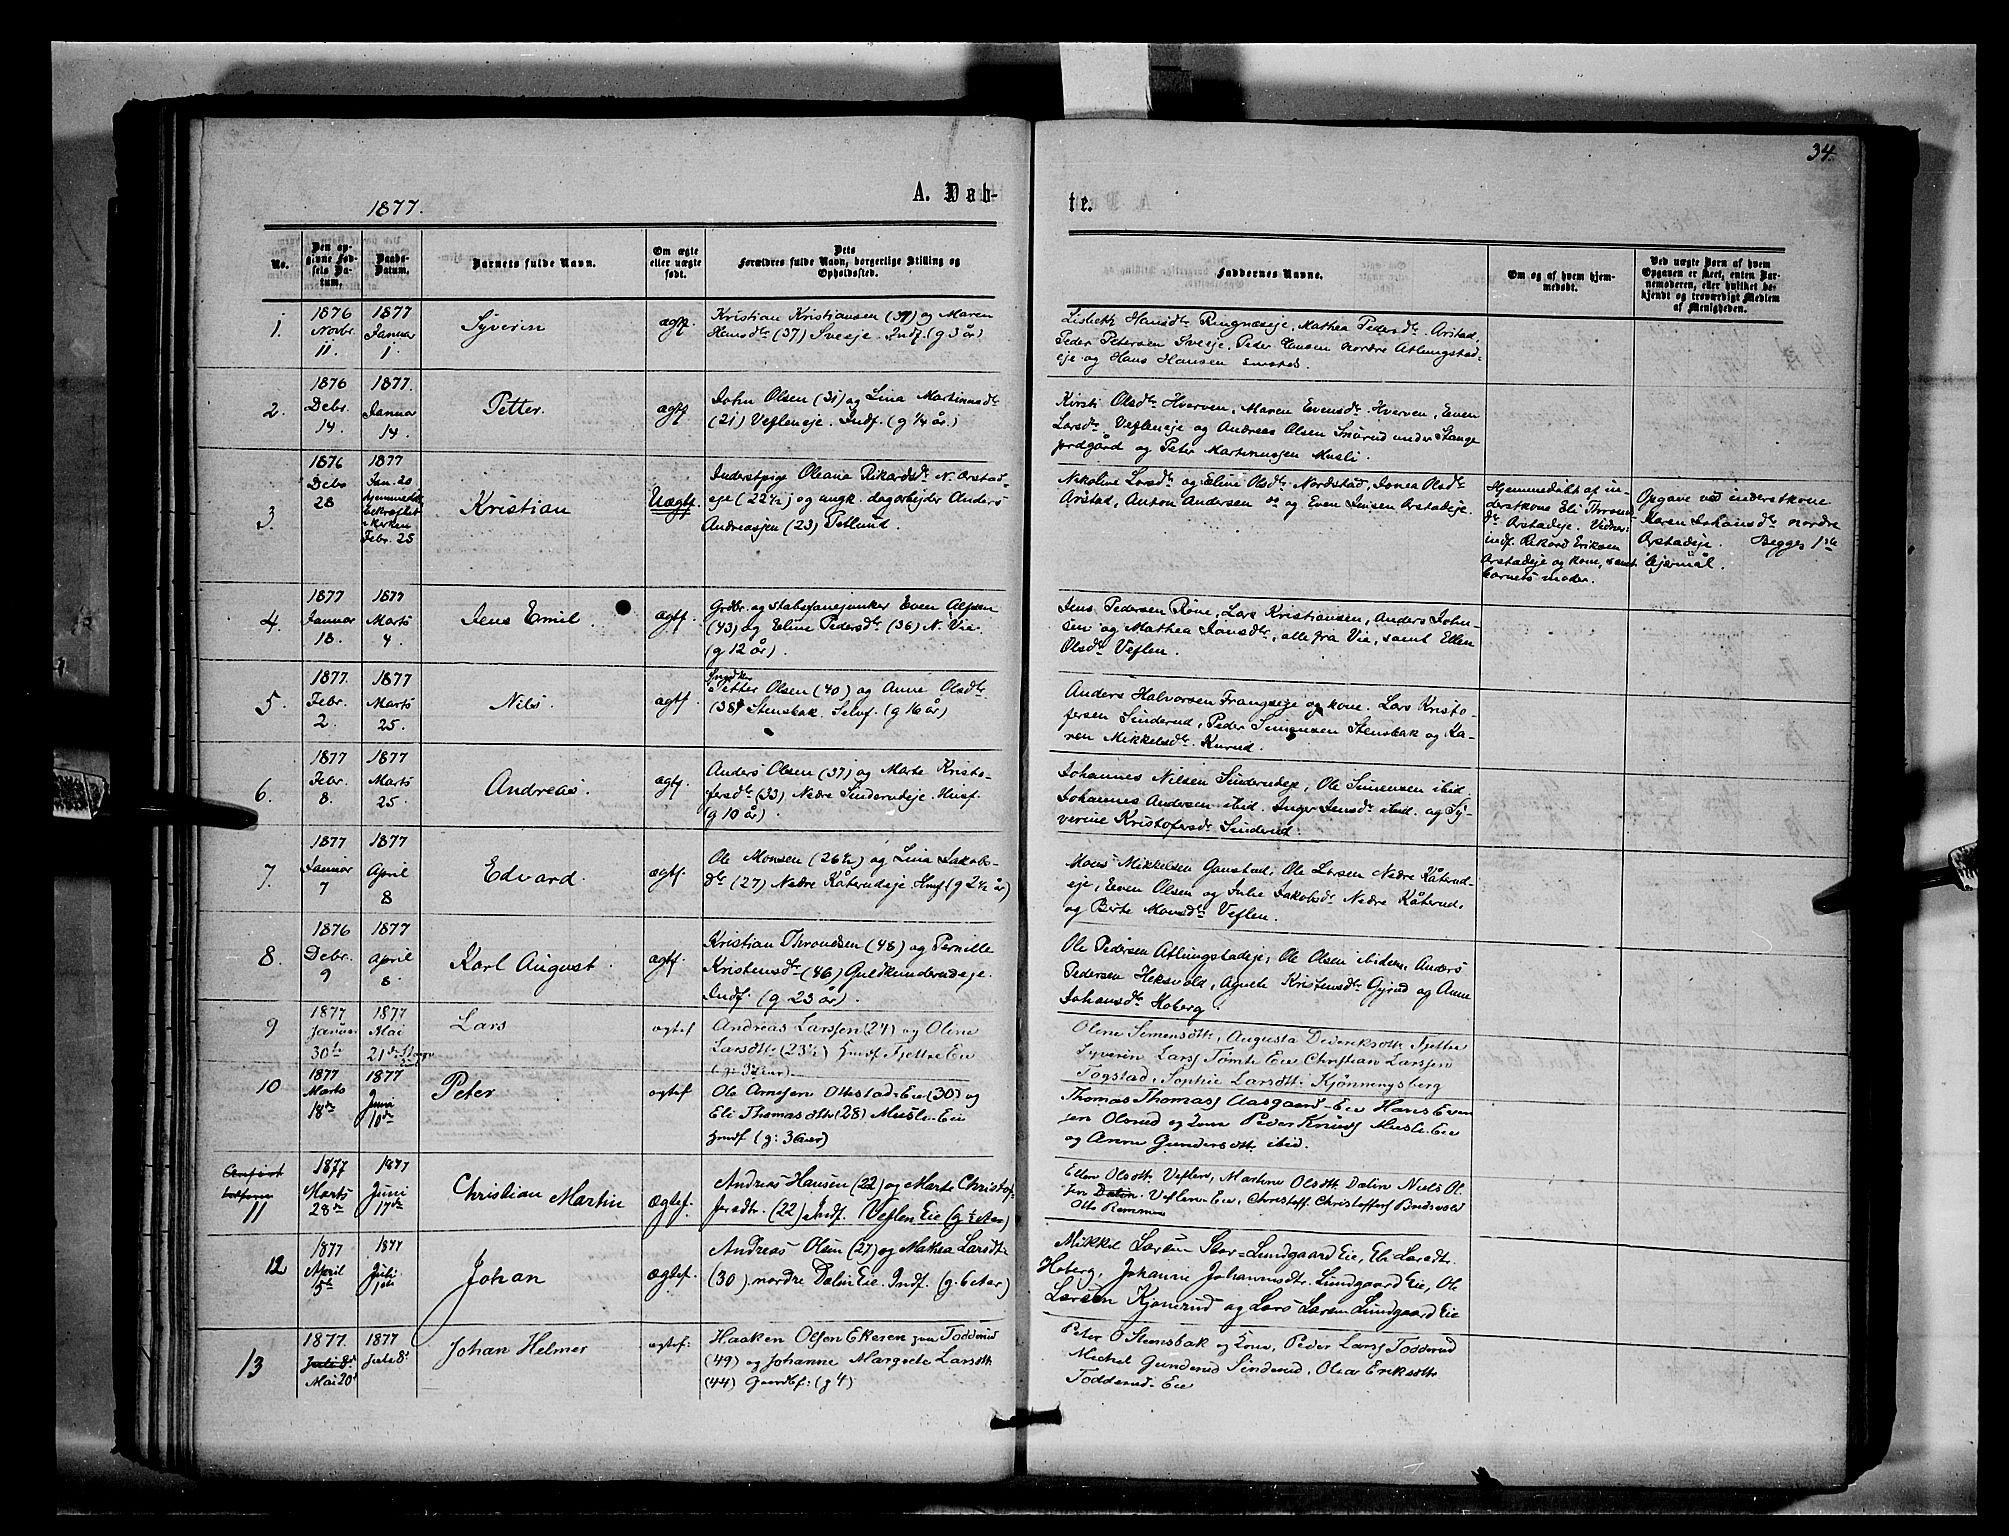 34.
1877.
A. Døb-
te.
No.
Den op-
givne Fød-
sels Da-
tum.
Daabs-
Datum.
Barnets fulde Navn.
Om ægte
eller uægte
født.
Dets
Forældres fulde Navn, borgerlige Stilling og
Opholdssted.
Faddernes Navne.
Om og af hvem hjem-
medøbt.
Ved uægte Børn af hvem
Opgaven er skeet, enten Bar-
nemoderen, eller hvilket be-
kjendt og troværdigt Medlem
af Menigheden.
1.
1876
Novbr.
11.
1877
Januar
1.
Syverin
ægtf.
Kristian Kristiansen (39) og Maren
Hansdtr (37) Sveeje. Indf. (g 3 år)
Lisbeth Hansdtr Ringnæseje, Mathea Pedersdtr Arstad,
Peder Petersen Sveeje, Peder Hansen nordre Atlungstad-
eje og Hans Hansen
2.
1876
Debr.
14.
1877.
Januar
14.
Petter.
ægtf.
John Olsen (31) og Lina Martinusdtr
(21) Vefleneje. Indf. (g 1/4 år.)
Kirsti Olsdtr Hverven, Maren Evensdtr Hverven, Even
Larsdtr. Vefleneje og Andreas Olsen Smörud under Stange
prdgård og Peter Martinussen Musli.
3.
1876
Debr
28
1877
Jan. 20
hjemmedöbt
Bekræftet
i kirken
Febr. 25
Kristian
Uægtf.
Inderstpige Oleana Rikardsdtr N. Arstad-
eje (22 1/2) og ungk. dagarbejder Anders
Andreassen (23) Petlund.
Nikoline Larsdtr og Eline Olsdtr Nordstad, Jonea Olsdtr
Arstad, Anton Andersen og Even Jensen Arstadeje.
Hjemmedöbt af in-
derstkone Eli Thrond-
dtr Arstadeje. Vidner:
indf. Rikard Eriksen
Arstadeje og kone, samt
barnets moder.
Opgave ved inderstkone
Karen Johansdtr nordre
Arstadeje. Begges 1ste
lejermål.
4.
1877
Januar
18.
1877
Marts
4
Jens Emil.
ægtf.
Grdbr. og stabsfanejunker Even Alfsen
(43) og Eline Pedersdtr (36) N. Vie.
(g 12 år).
Jens Pedersen Röne, Lars Kristiansen, Anders John-
sen og Mathea Jonsdtr, alle fra Vie, samt Ellen
Olsdtr Veflen.
5.
1877.
Febr.
2.
1877
Marts
25.
Nils.
ægtf.
Petter Olsen (40) og Anne Olsdtr
(38) Stensbak. Selvf. (g 16 år)
Anders Halvorsen Frangseje og kone. Lars Kristo-
fersen Sinderud, Peder Simensen Stensbak og Ka-
ren Mikkelsdtr. Kurud.
6.
1877
Febr.
8.
1877
Marts
25.
Andreas.
ægtf.
Anders Olsen (37) og Marte Kristo-
fersdtr (33) Nedre Sinderudeje. Husf.
(g 10 år).
Johannes Nilsen Sinderudeje, Ole Simensen ibid.
Johannes Andersen ibid. Inger Jensdtr ibid. og Sy-
verine Kristofersdtr Sinderud.
7.
1877
Januar
7
1877
April
8
Edvard.
ægtf.
Ole Monsen (26 1/2) og Lina Jakobs-
dtr (27) Nedre Kåterudeje. Husf (g 2 1/2 år)
Mons Mikkelsen Gaustad, Ole Larsen Nedre Kåterud-
eje, Even Olsen og Julie Jakobsdtr Nedre Kåterud,
og Berte Monsdtr Veflen.
8.
1876
Debr.
9
1877
April
8
Karl August.
ægtf.
Kristian Throndsen (48) og Pernille
Kristensdtr (46) Guldkunderudeje.
Indf. (g. 23 år).
Ole Pedersen Atlungstadeje, Ole Olsen ibidem, Anders
Pedersen Heksvold, Agnete Kristensdtr Gyrud og Anne
Johansdtr Hoberg.
9
1877
Januar
30te
1877
Mai
21de
Lars
ægtef
Andreas Larssen (24) og Oline
Larsdtr (23 1/2) Indf. Fjettre Eie
Oline Simensdtr, Augusta Dideriksdtr Fjettre
Syverin Larss Tömte Eie Christian Larssen
Togstad, Sophie Larsdtr Kjönningsberg
10
1877
Marts
18de
1877
Juni
10de
Peter
ægtef
Ole Arnesen Ottestad-Eie (30) og
Eli Thomasdtr (28) Musli-Eie
Indf (g: 3 Aar)
Thomas Thomass Aasgaard-Eie Hans Even
sen Olsrud og Kone Peder Knuds Musli-Eie
og Anne Gundersdtr ibid.
11
1877
Marts
28de
1877
Juni
17de
Christian Martin
Ægtef.
Andreas Hansen (22) og Marte Christof-
fersdtr. (22) Indf. Veflen Eie (g. 1/2 Aar)
Ellen Olsdtr Veflen, Martine Olsdtr Dalin Niels Ol
sen Dalin. Veflen-Eie, Christoff. Christoffers Bredvold
Otto Rommen
12
1877
April
5te
1877
Juli
1ste
Johan
Ægtef.
Andreas Olsen (27) og Mathea Larsdtr
(30) nordre Dalin Eie. Indf. (g. 6 Aar)
Mikkel Larsen Stor-Lundgaard Eie, Eli Larsdtr.
Hoberg, Johanne Johannesdtr. Lundgaard Eie, Ole
Larsen Kjonerud og Lars Larsen Lundgaard Eie
13
1877.
Juli 8de
Mai 20de
1877
Juli 8de
Johan Helmer
ægtef.
Haaken Olsen Ekeren paa Todderud
(49) og Johanne Margrete Larsdtr
(44) Gaardbf: (g 4)
Peter O Stensbak og Kone, Peder Larss Todderud
Michel Gunderud Sinderud, Olea Eriksdtr
Todderud-Eie